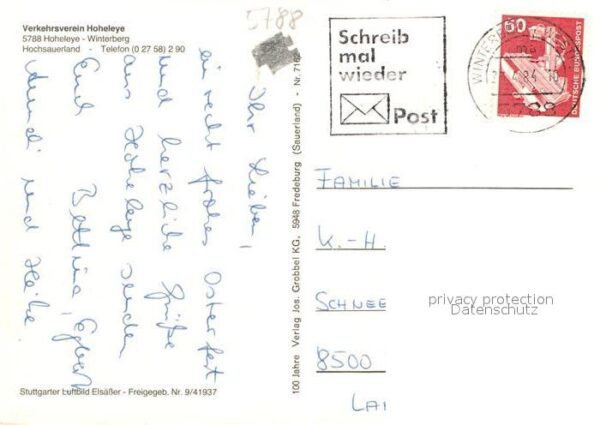 Verkehrsverein Hoheleye
5788 Hoheleye - Winterberg
Hochsauerland - Telefon (0 27 58) 2 90
5788
Ihr Lieben,
ein recht frohes Osterfest
und herzliche Grüße
aus Hoheleye senden
Euch Bettina, Egbert
und Heike
Stuttgarter Luftbild Elsäßer - Freigegeb. Nr. 9/41937
100 Jahre Verlag Jos. Grobbel KG, 5948 Fredeburg (Sauerland) · Nr. 7162
Schreib
mal
wieder
Post
60
DEUTSCHE BUNDESPOST
5788
FAMILIE
K.-H.
SCHNEE
8500
LAI
privacy protection
Datenschutz